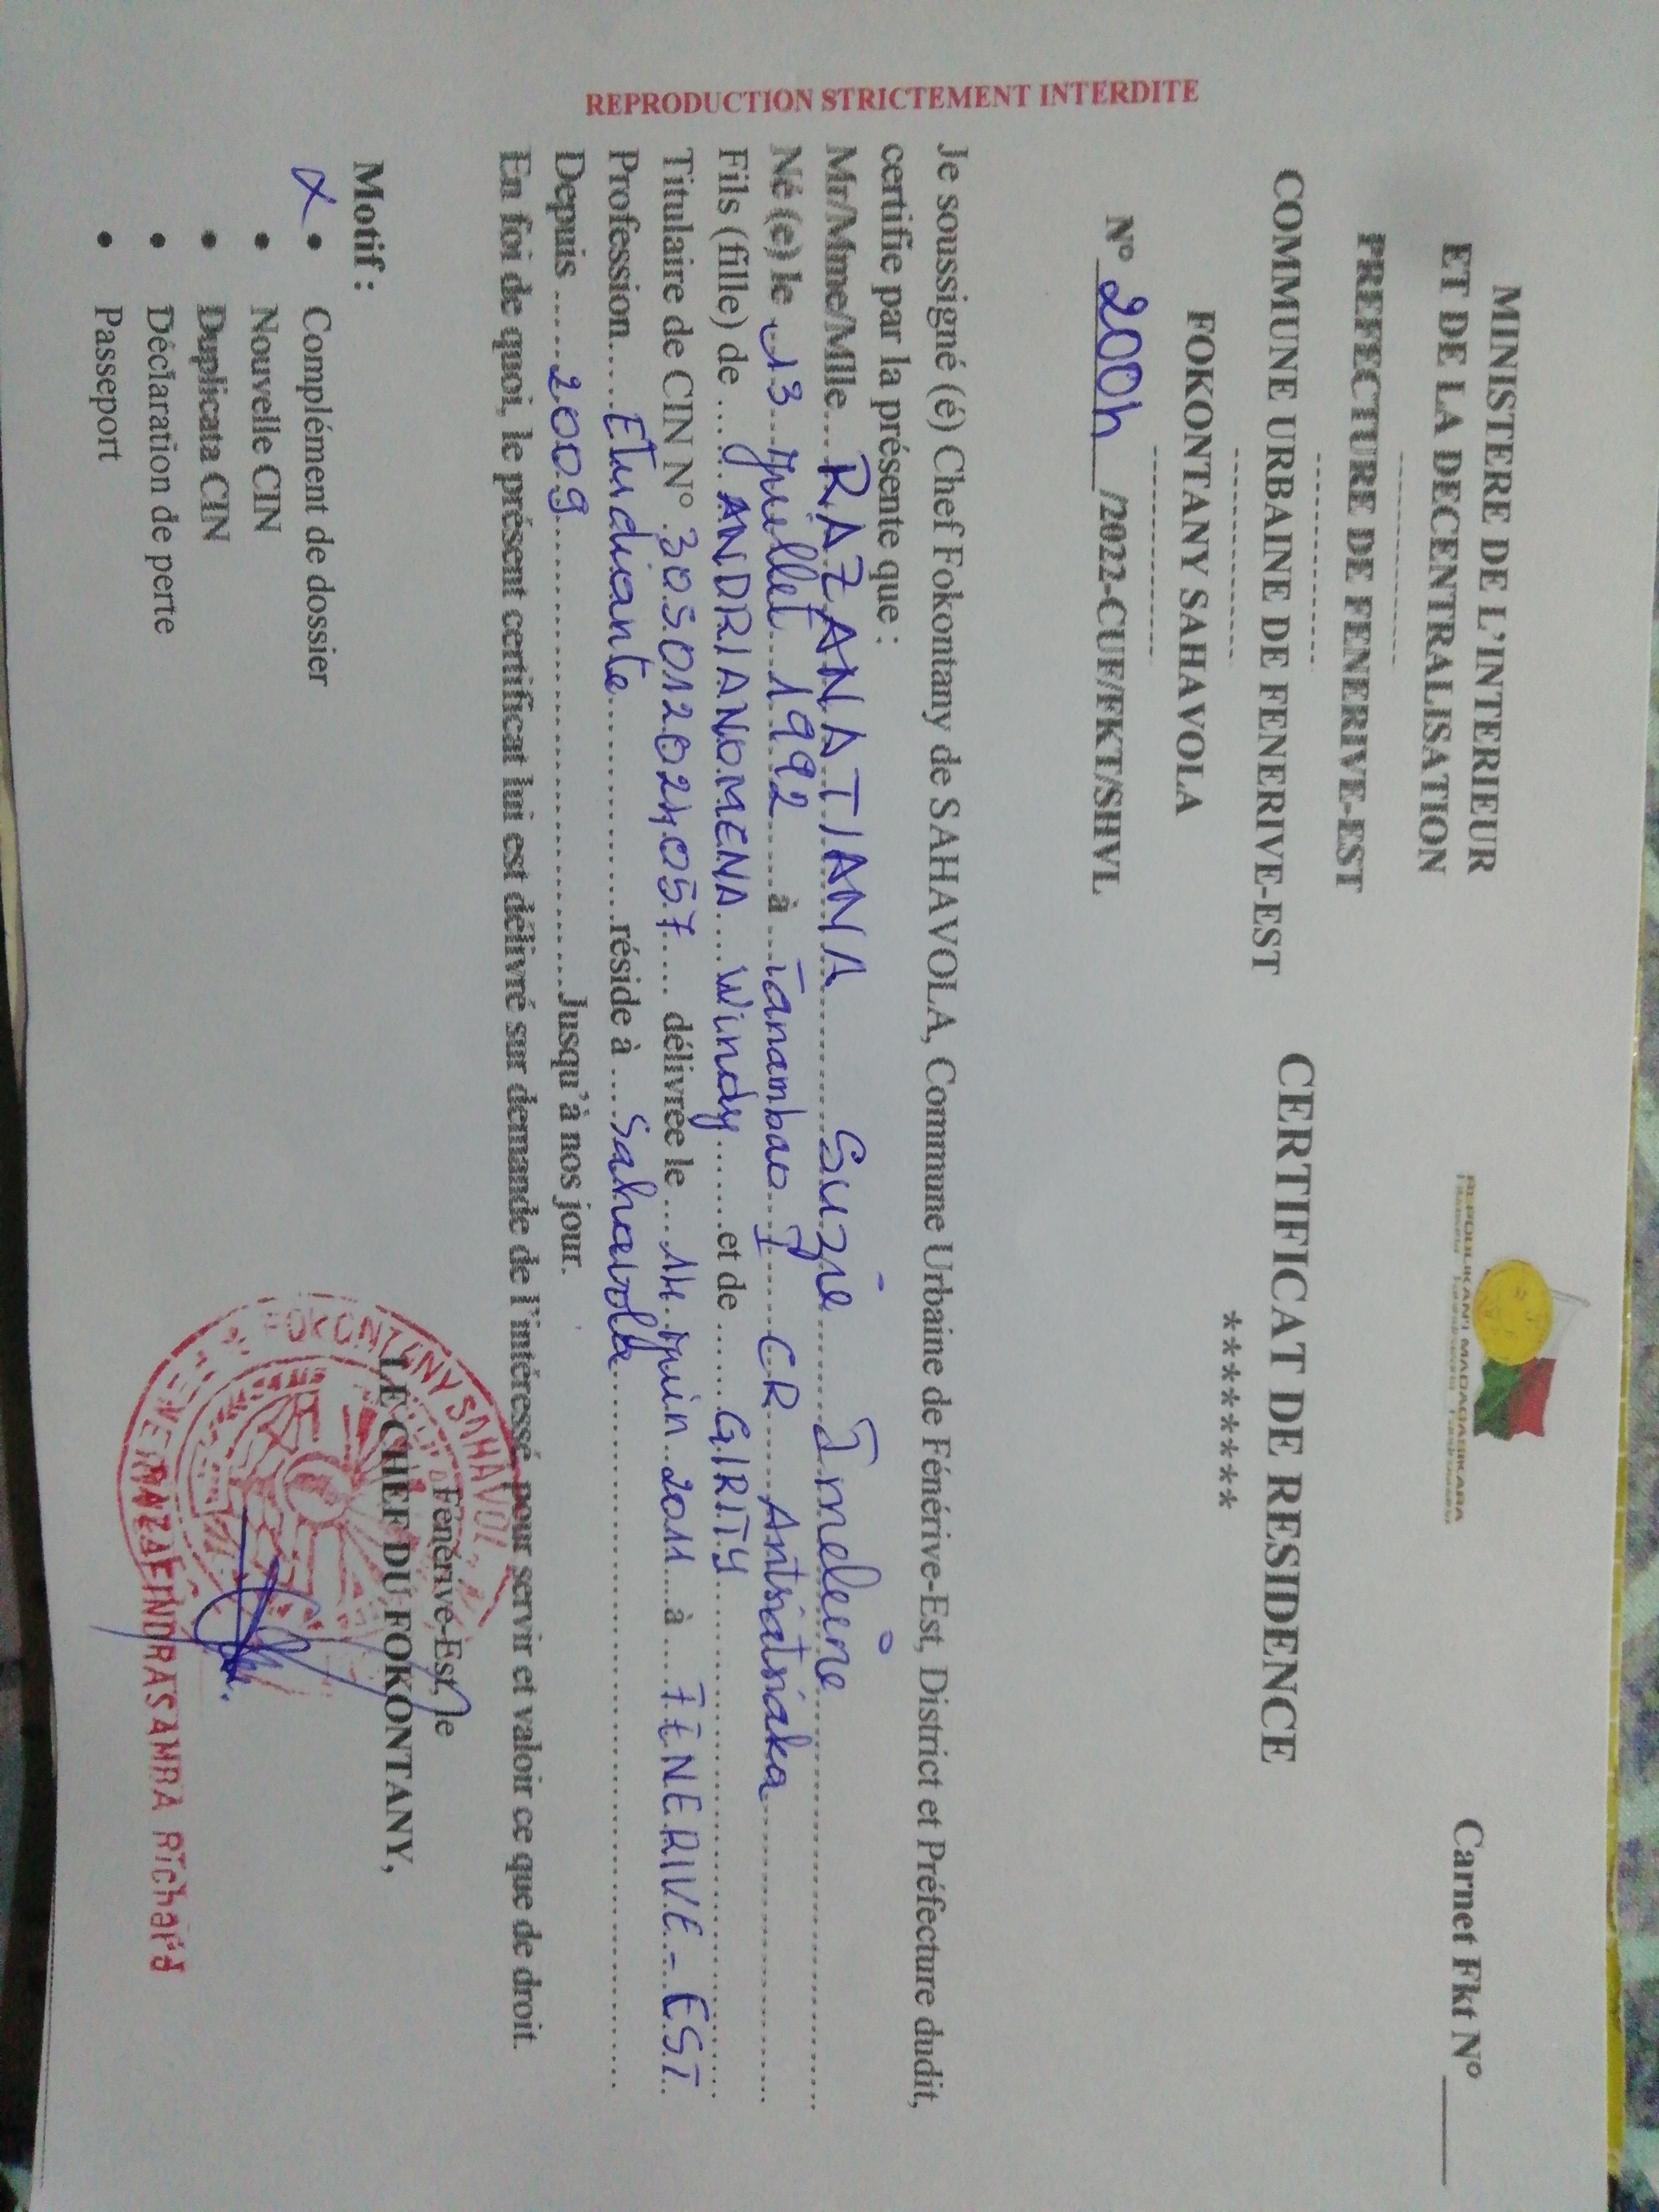 MINISTERE DE L'INTERIEUR
ET DE LA DECENTRALISATION
PREFECTURE DE FENERIVE-EST
COMMUNE URBAINE DE FENERIVE-EST
FOKONTANY SAHAVOLA
N° 200h /2022-CUF/FKT/SHVL
REPOBLIKAN'I MADAGASIKARA
Carnet Fkt N°
CERTIFICAT DE RESIDENCE
********
Je soussigné (é) Chef Fokontany de SAHAVOLA, Commune Urbaine de Fénérive-Est, District et Préfecture dudit,
certifie par la présente que :
Mr/Mme/Mlle RAZANATIANA Suzie
Né (e) le 13 juillet 1992 à Tanambao I CR Antsiatsiaka
Fils (fille) de ANDRIANOMENA Windy et de GIRITY
Titulaire de CIN N° 305012024057 délivrée le 14 juin 2011 à FENERIVE-EST
Profession Etudiante réside à Sahavola
Depuis 2009 Jusqu'à nos jour.
En foi de quoi, le présent certificat lui est délivré sur demande de l'intéressé pour servir et valoir ce que de droit.
Fénérive-Est, le
LE CHEF DU FOKONTANY,
Motif :
• Complément de dossier
• Nouvelle CIN
• Duplicata CIN
• Déclaration de perte
• Passeport
FOKONTANY SAHAVOL
RAZAFINDRASAMBA Richard
REPRODUCTION STRICTEMENT INTERDITE